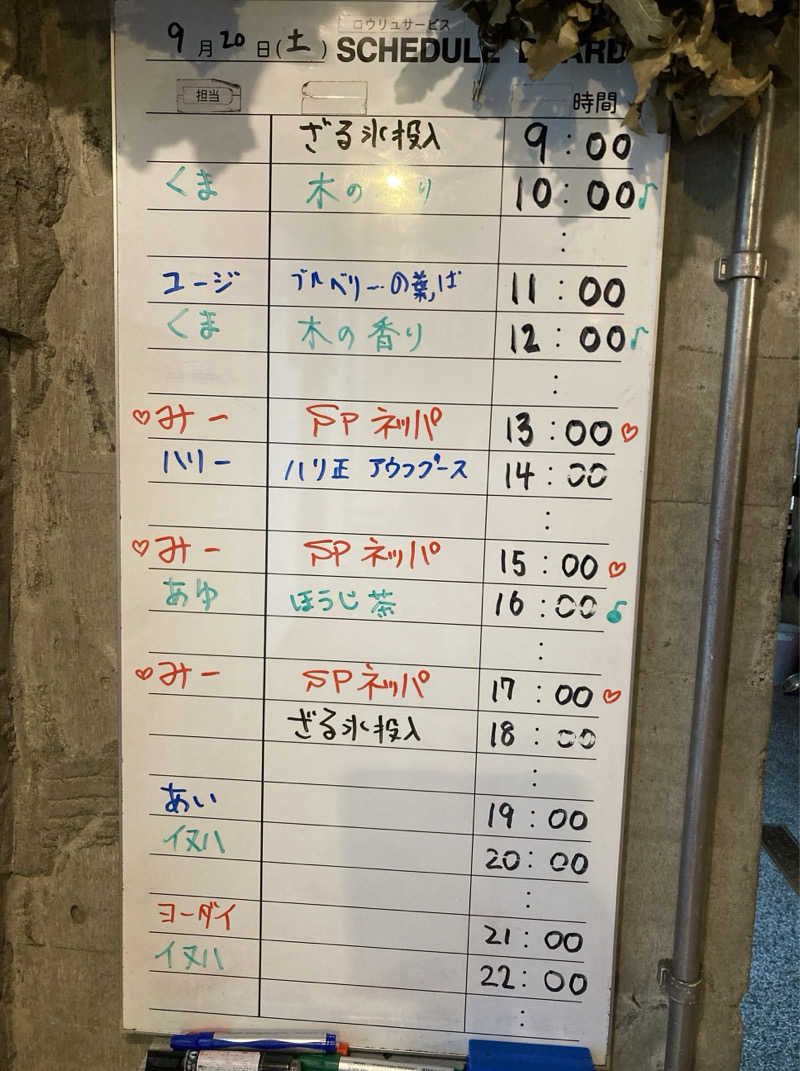 ロウリュサービス
9月20日(土) SCHEDULE
担当 時間
ざる氷投入 9:00
くま 木の り 10:00♪
:
ユージ ブルベリーの葉っぱ 11:00
くま 木の香り 12:00♪
:
♡みー SPネッパ 13:00♡
ハリー ハリ正 アウフグース 14:00
:
♡みー SPネッパ 15:00♡
あゆ ほうじ茶 16:00♪
:
♡みー SPネッパ 17:00♡
ざる氷投入 18:00
:
あい 19:00
イヌハ 20:00
:
ヨーダイ 21:00
イヌハ 22:00
: